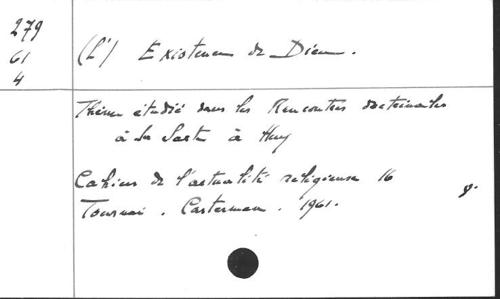 279
61
4
(L') Existence de Dieu.
Thème étudié dans les Rencontres doctrinales
à La Sarte à Huy
Cahiers de l'actualité religieuse 16
Tournai. Casterman. 1961. 8°